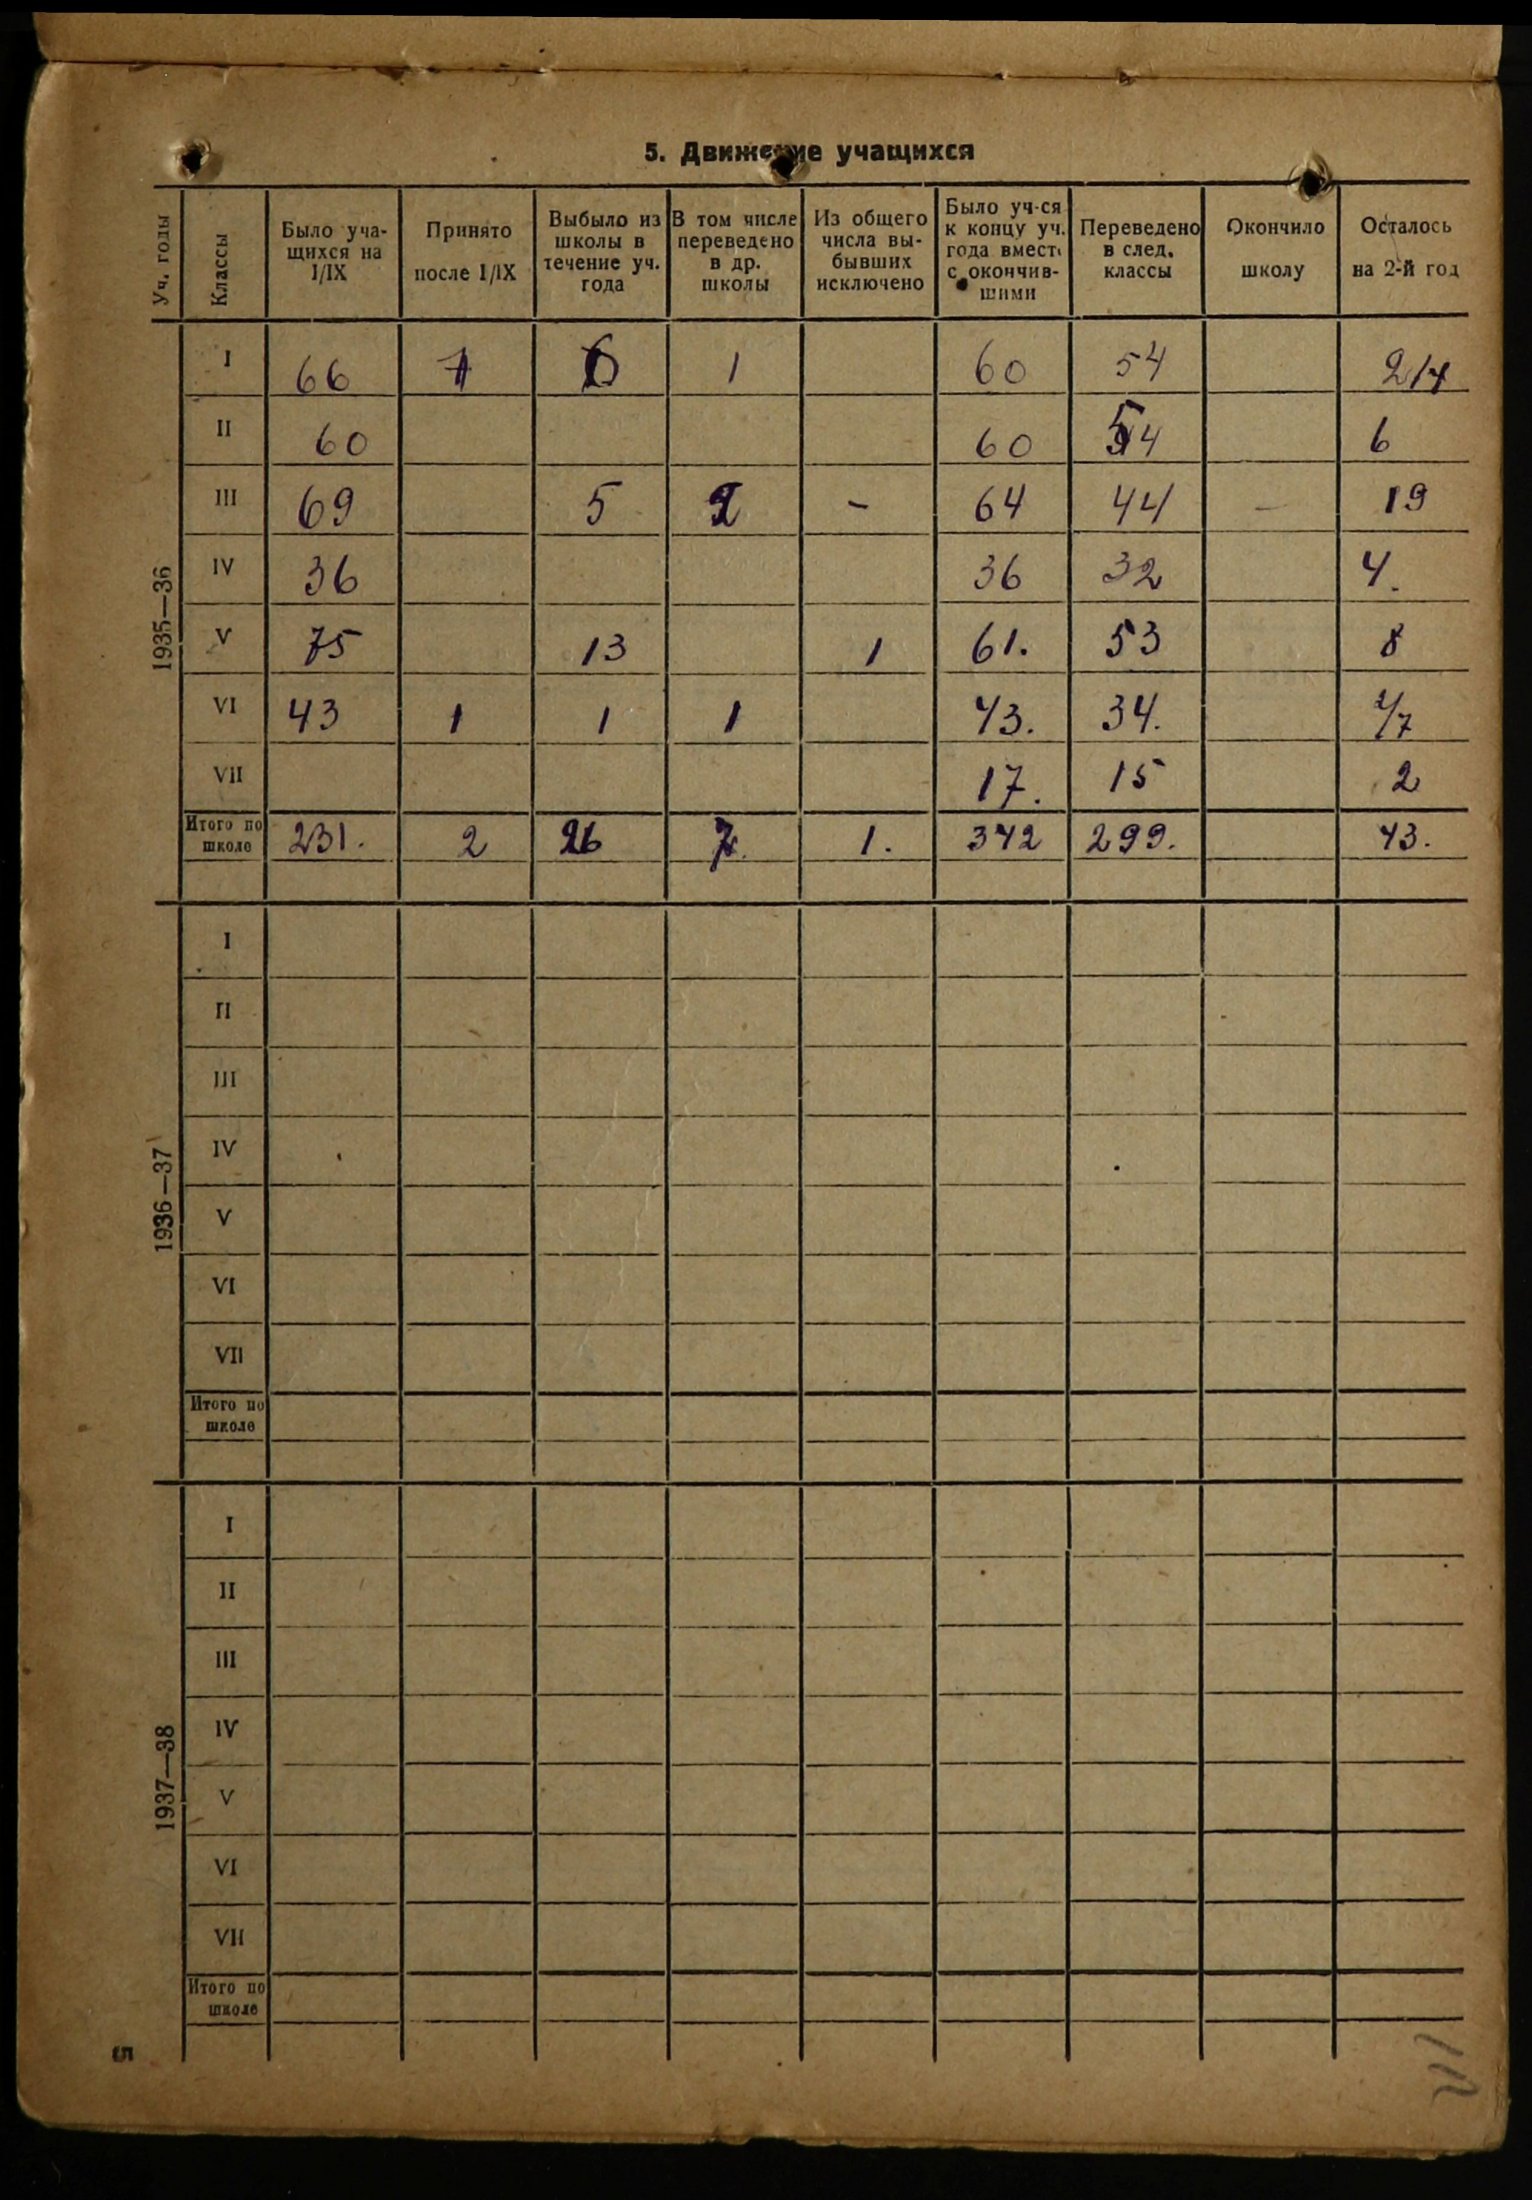 5. Движение учащихся
Уч. годы | Классы | Было уча-щихся на 1/IX | Принято после 1/IX | Выбыло из школы в течение уч. года | В том числе переведено в др. школы | Из общего числа вы-бывших исключено | Было уч-ся к концу уч. года вместе с окончив-шими | Переведено в след. классы | Окончило школу | Осталось на 2-й год
1935—36
I 66 1 6 1 60 54
II 60 60 54 6
III 69 5 2 - 64 44 — 19
IV 36 36 32 4.
V 75 13 1 61. 53 8
VI 43 1 1 1 43. 34. 2/7
VII 17. 15 2
Итого по школе 231. 2 26 1. 342 299. 43.
1936—37
I
II
III
IV
V
VI
VII
Итого по школе
1937—38
I
II
III
IV
V
VI
VII
Итого по школе
5